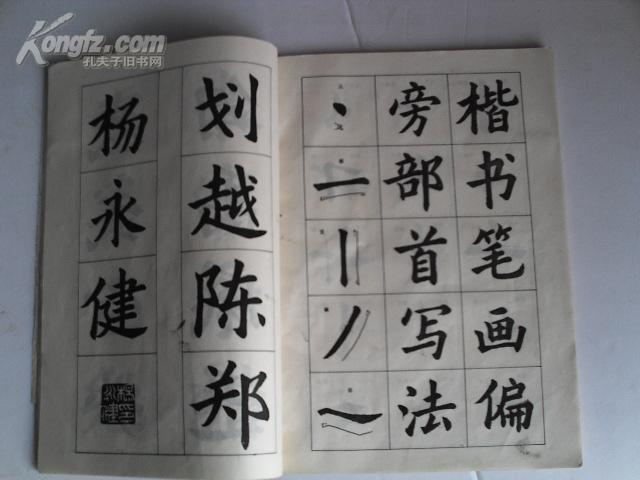 Kongfz.com
孔夫子旧书网
楷书笔画偏
旁部首写法
划越陈郑
杨永健